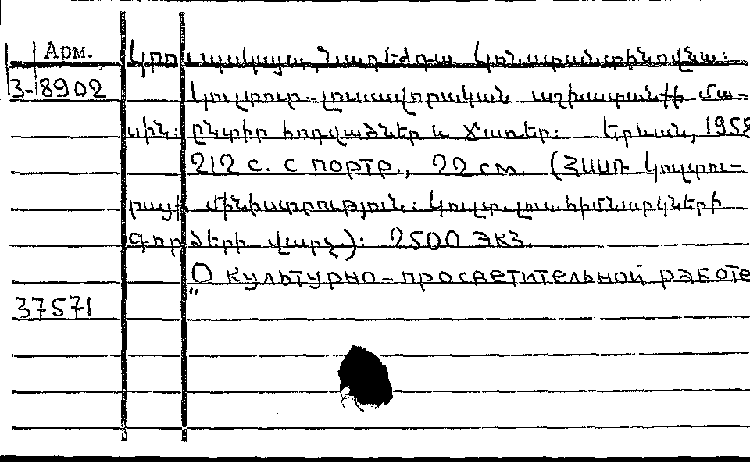 Арм.
Կրուպսկայա, Նադեժդա Կոնստանտինովնա:
3-8902
Կուլտուր-լուսավորական աշխատանքի մա-
սին: ընտիր հոդվածներ և ճառեր: Երևան, 1958
212 с. с портр., 22 см. (ՀՍՍՌ Կուլտու-
րայի մինիստրություն: Կուլտ.լուս.հիմնարկների
գործերի վարչ): 2500 экз.
"О культурно-просветительной работе
37571